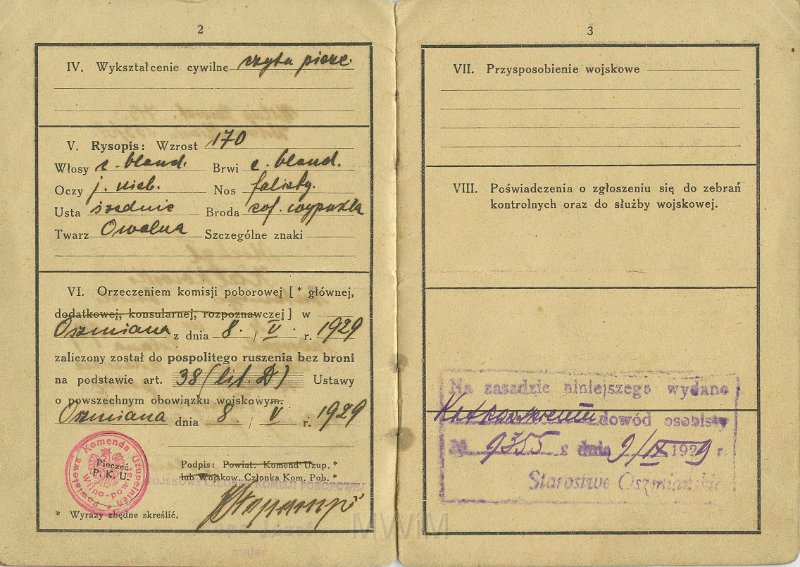 2
IV. Wykształcenie cywilne czyta pisze.
V. Rysopis: Wzrost 170
Włosy c. blond. Brwi c. blond.
Oczy j. nieb. Nos falisty.
Usta średnie Broda
Twarz Owalna Szczególne znaki
VI. Orzeczeniem komisji poborowej [* głównej,
dodatkowej, konsularnej, rozpoznawczej] w
Oszmiana z dnia 8. V. r. 1929
zaliczony został do pospolitego ruszenia bez broni
na podstawie art. 38 (lit. D) Ustawy
o powszechnym obowiązku wojskowym.
Oszmiana dnia 8 V r. 1929
Powiatowa Komenda Uzupełnień
Wilno-powiat
Pieczęć
P. K. U.
Podpis: Powiat. Komend Uzup. *
lub Wojskow. Członka Kom. Pob. *
* Wyrazy zbędne skreślić.
3
VII. Przysposobienie wojskowe
VIII. Poświadczenia o zgłoszeniu się do zebrań
kontrolnych oraz do służby wojskowej.
Na zasadzie niniejszego wydano
dowód osobisty
№ 9355 z dnia 9/IX 1929 r.
Starostwo Oszmiańskie
MWiM